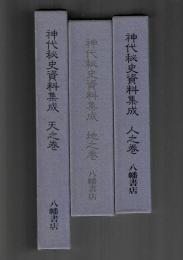 神代秘史資料集成 天之巻 八幡書店
神代秘史資料集成 地之巻 八幡書店
神代秘史資料集成 人之巻 八幡書店